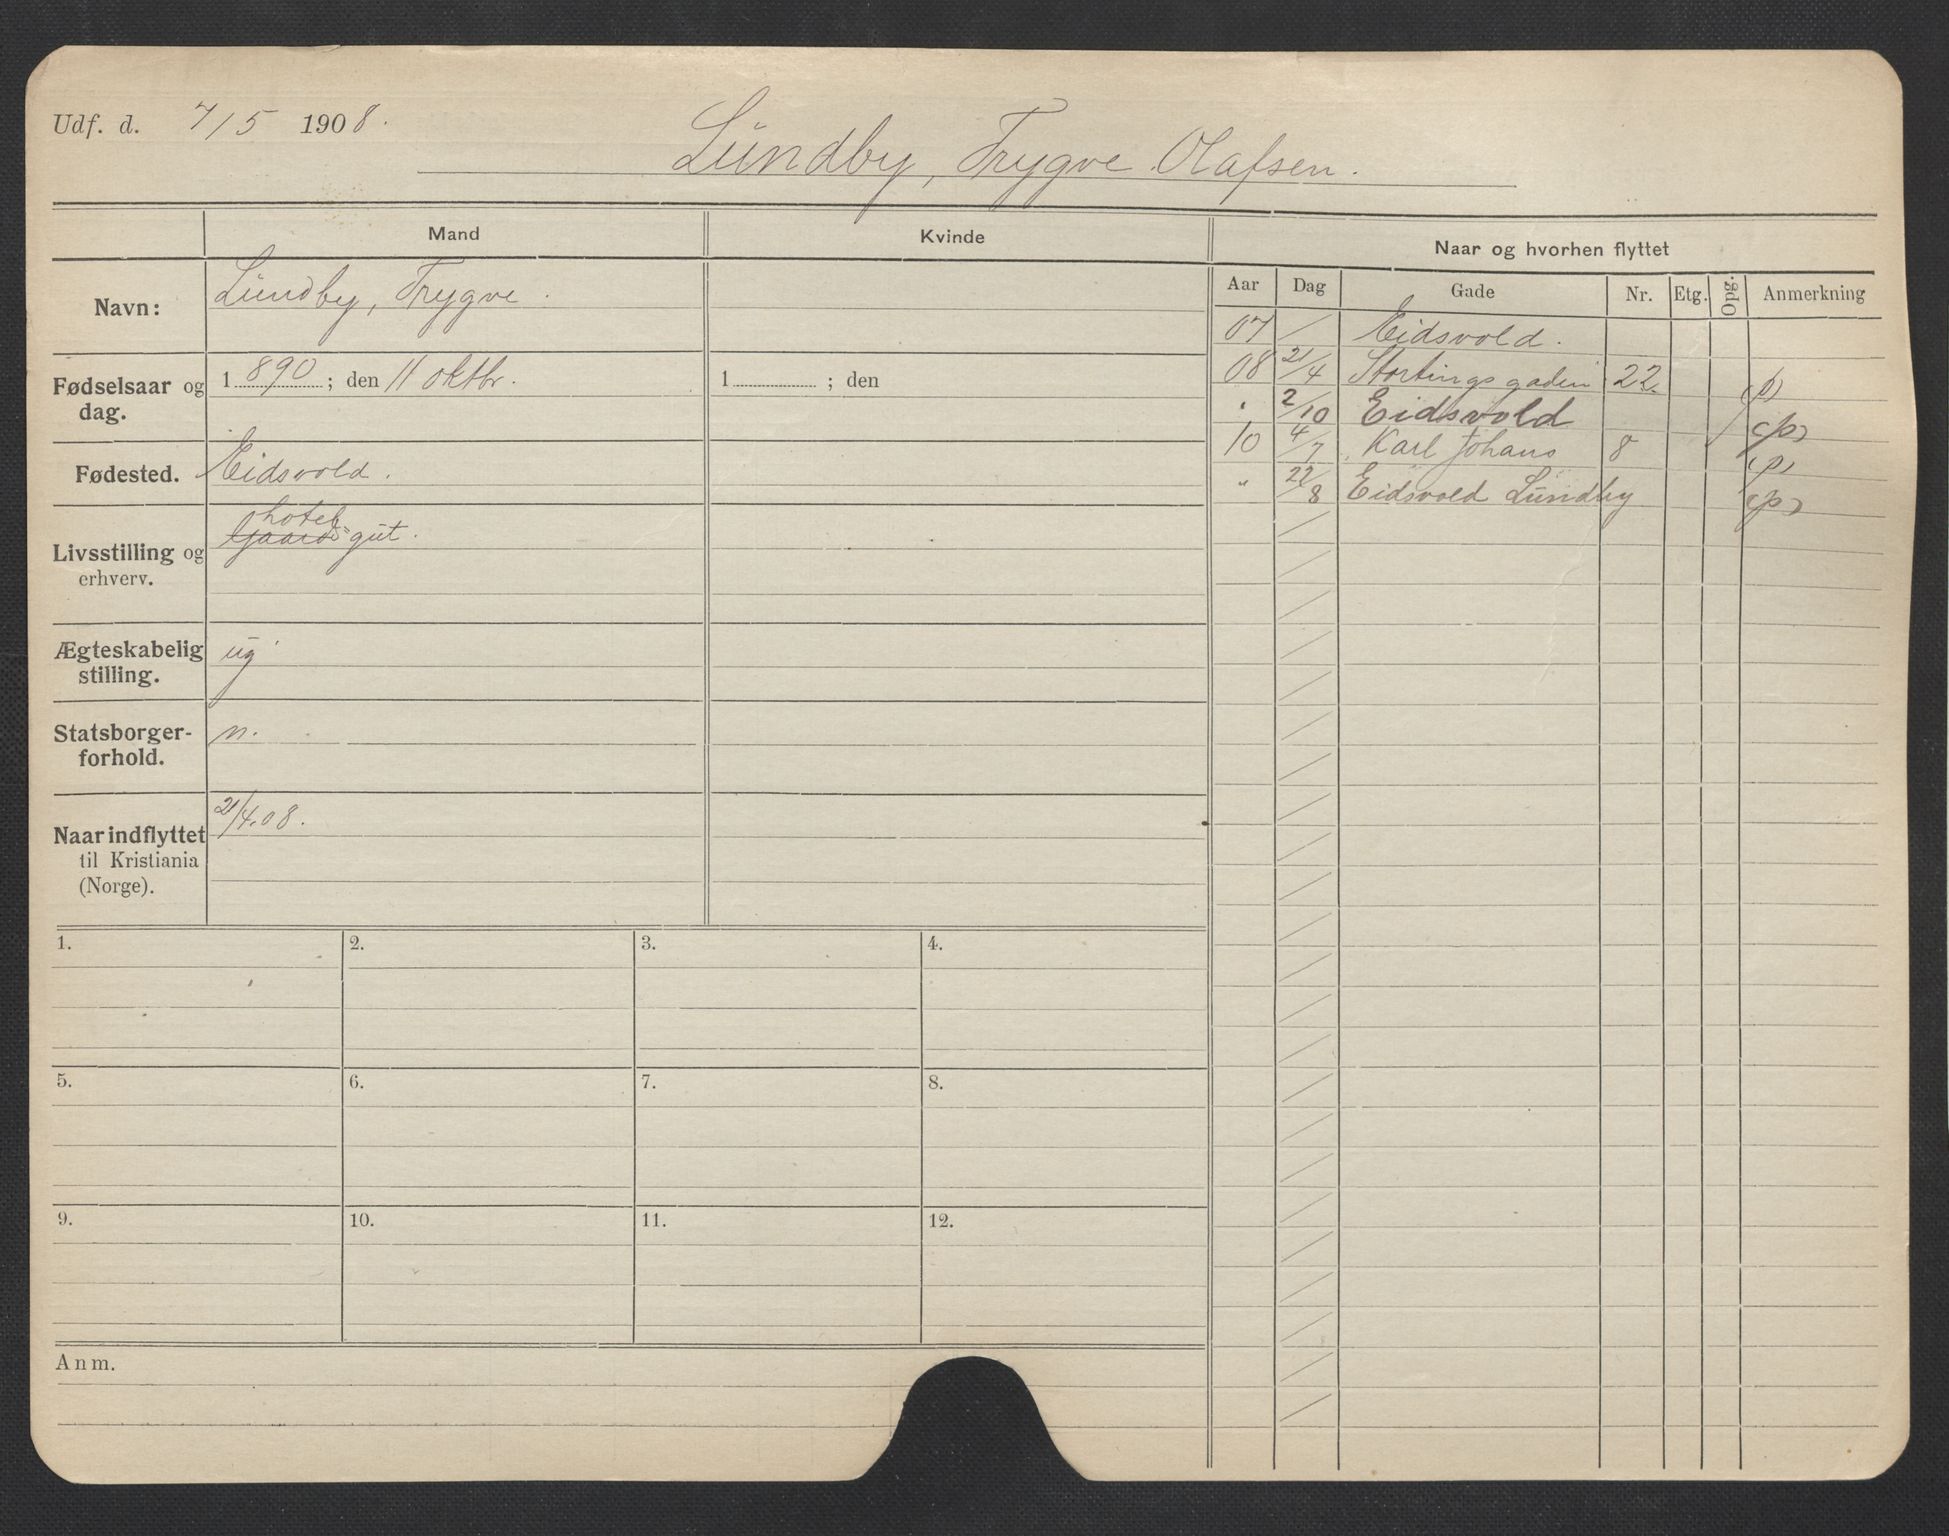 Udf. d. 7/5 1908.
Lundby, Trygve Olafsen.
Mand Kvinde Naar og hvorhen flyttet
Aar Dag Gade Nr. Etg. Opg. Anmerkning
Navn: Lundby, Trygve.
Fødselsaar og dag. 1890; den 11 oktbr. 1 ; den
Fødested. Eidsvold.
Livsstilling og erhverv. hotel
Gaards=gut.
Ægteskabelig stilling. ug
Statsborgerforhold. n.
Naar indflyttet til Kristiania (Norge). 21/4.08.
07 / Eidsvold.
08 21/4 Stortingsgaden 22. (p)
" 2/10 Eidsvold (p)
10 4/7 Karl Johans 8 (p)
" 22/8 Eidsvold Lundby (p)
1. 2. 3. 4.
5. 6. 7. 8.
9. 10. 11. 12.
Anm.